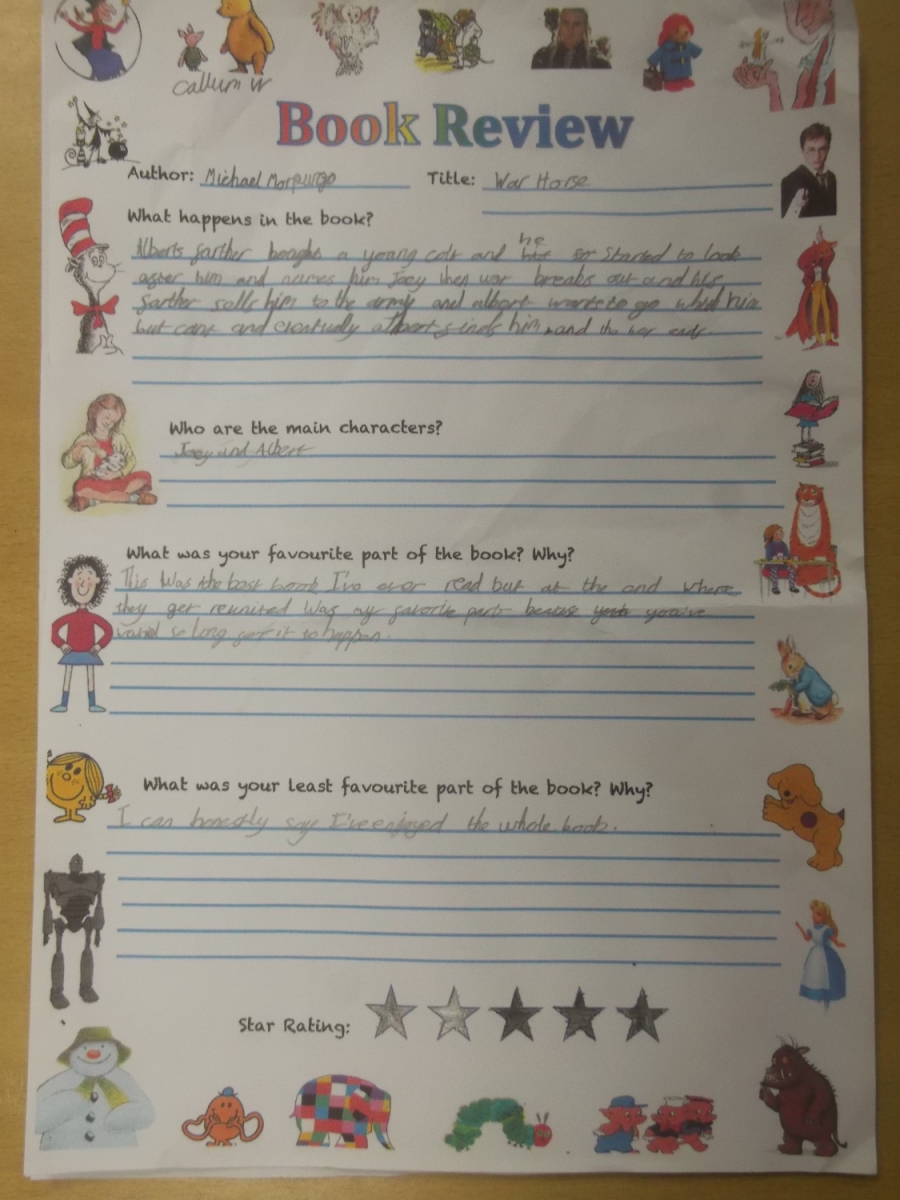 Callum W
Book Review
Author: Michael Morpurgo Title: War Horse
What happens in the book?
Alberts farther bought a young colt and he started to look
after him and names him Joey then war breaks out and his
farther sells him to the army and albert wants to go whith him
but cant and eventually albert finds him and the war ends.
Who are the main characters?
Joey and Albert
What was your favourite part of the book? Why?
This Was the best book I've ever read but at the end where
they get reunited Was my favorite part because you've
waited so long for it to happen.
What was your least favourite part of the book? Why?
I can honestly say I've enjoyed the whole book.
Star Rating: